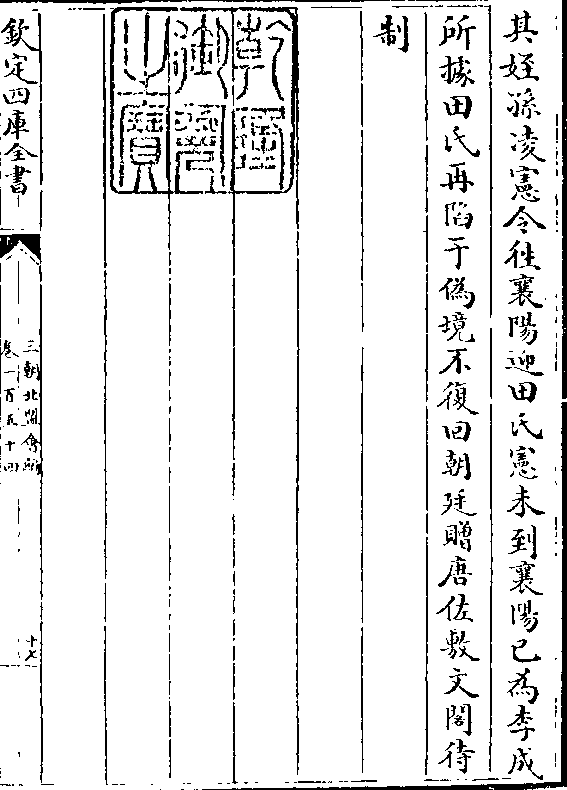 其姪孫凌憲令往襄陽迎田氏憲未到襄陽已為李成
所據田氏再陷于偽境不復回朝廷贈唐佐敷文閣待
制
乾隆
御覽
之寶
欽定四庫全書
三朝北盟會編
卷一百五十四
十七